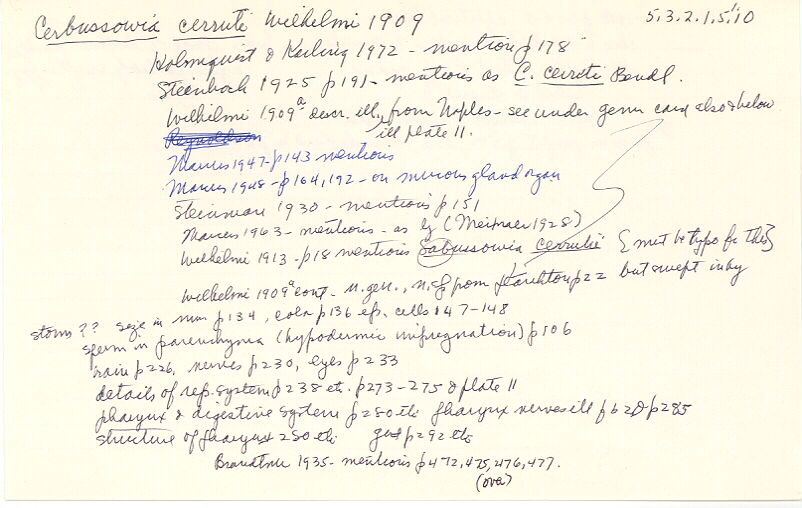 Cerbussowia cerruti Wilhelmi 1909 5.3.2.1.5.10
Holmquist & Karling 1972 - mention p178
Steinbock 1925 p191 - mentions as C. cerreti Bendl.
Wilhelmi 1909a descr. ill. from Naples - see under genus card also & below
ill plate 11.
Reynoldson
Marcus 1947 - p143 mentions
Marcus 1948 - p164, 192 - on mucous gland organ
Steinmann 1930 - mentions p151
Marcus 1963 - mentions - as by (Meixner 1928)
Wilhelmi 1913 - p18 mentions Sabussowia cerrutii {must be typo for this}
Wilhelmi 1909a cont - n.gen., n.sp from plankton p22 but swept in by
storm?? size in mm p134, color p136 ep. cells 147-148
sperm in parenchyma (hypodermic impregnation) p106
brain p226, nerves p230, eyes p233
details of rep. system p238 etc. p273-275 & plate 11
pharynx & digestive system p280 etc pharynx nerves ill p62 & p285
structure of pharynx 280 etc gut p292 etc
1935 - mentions p472, 475, 476, 477.
(ova)